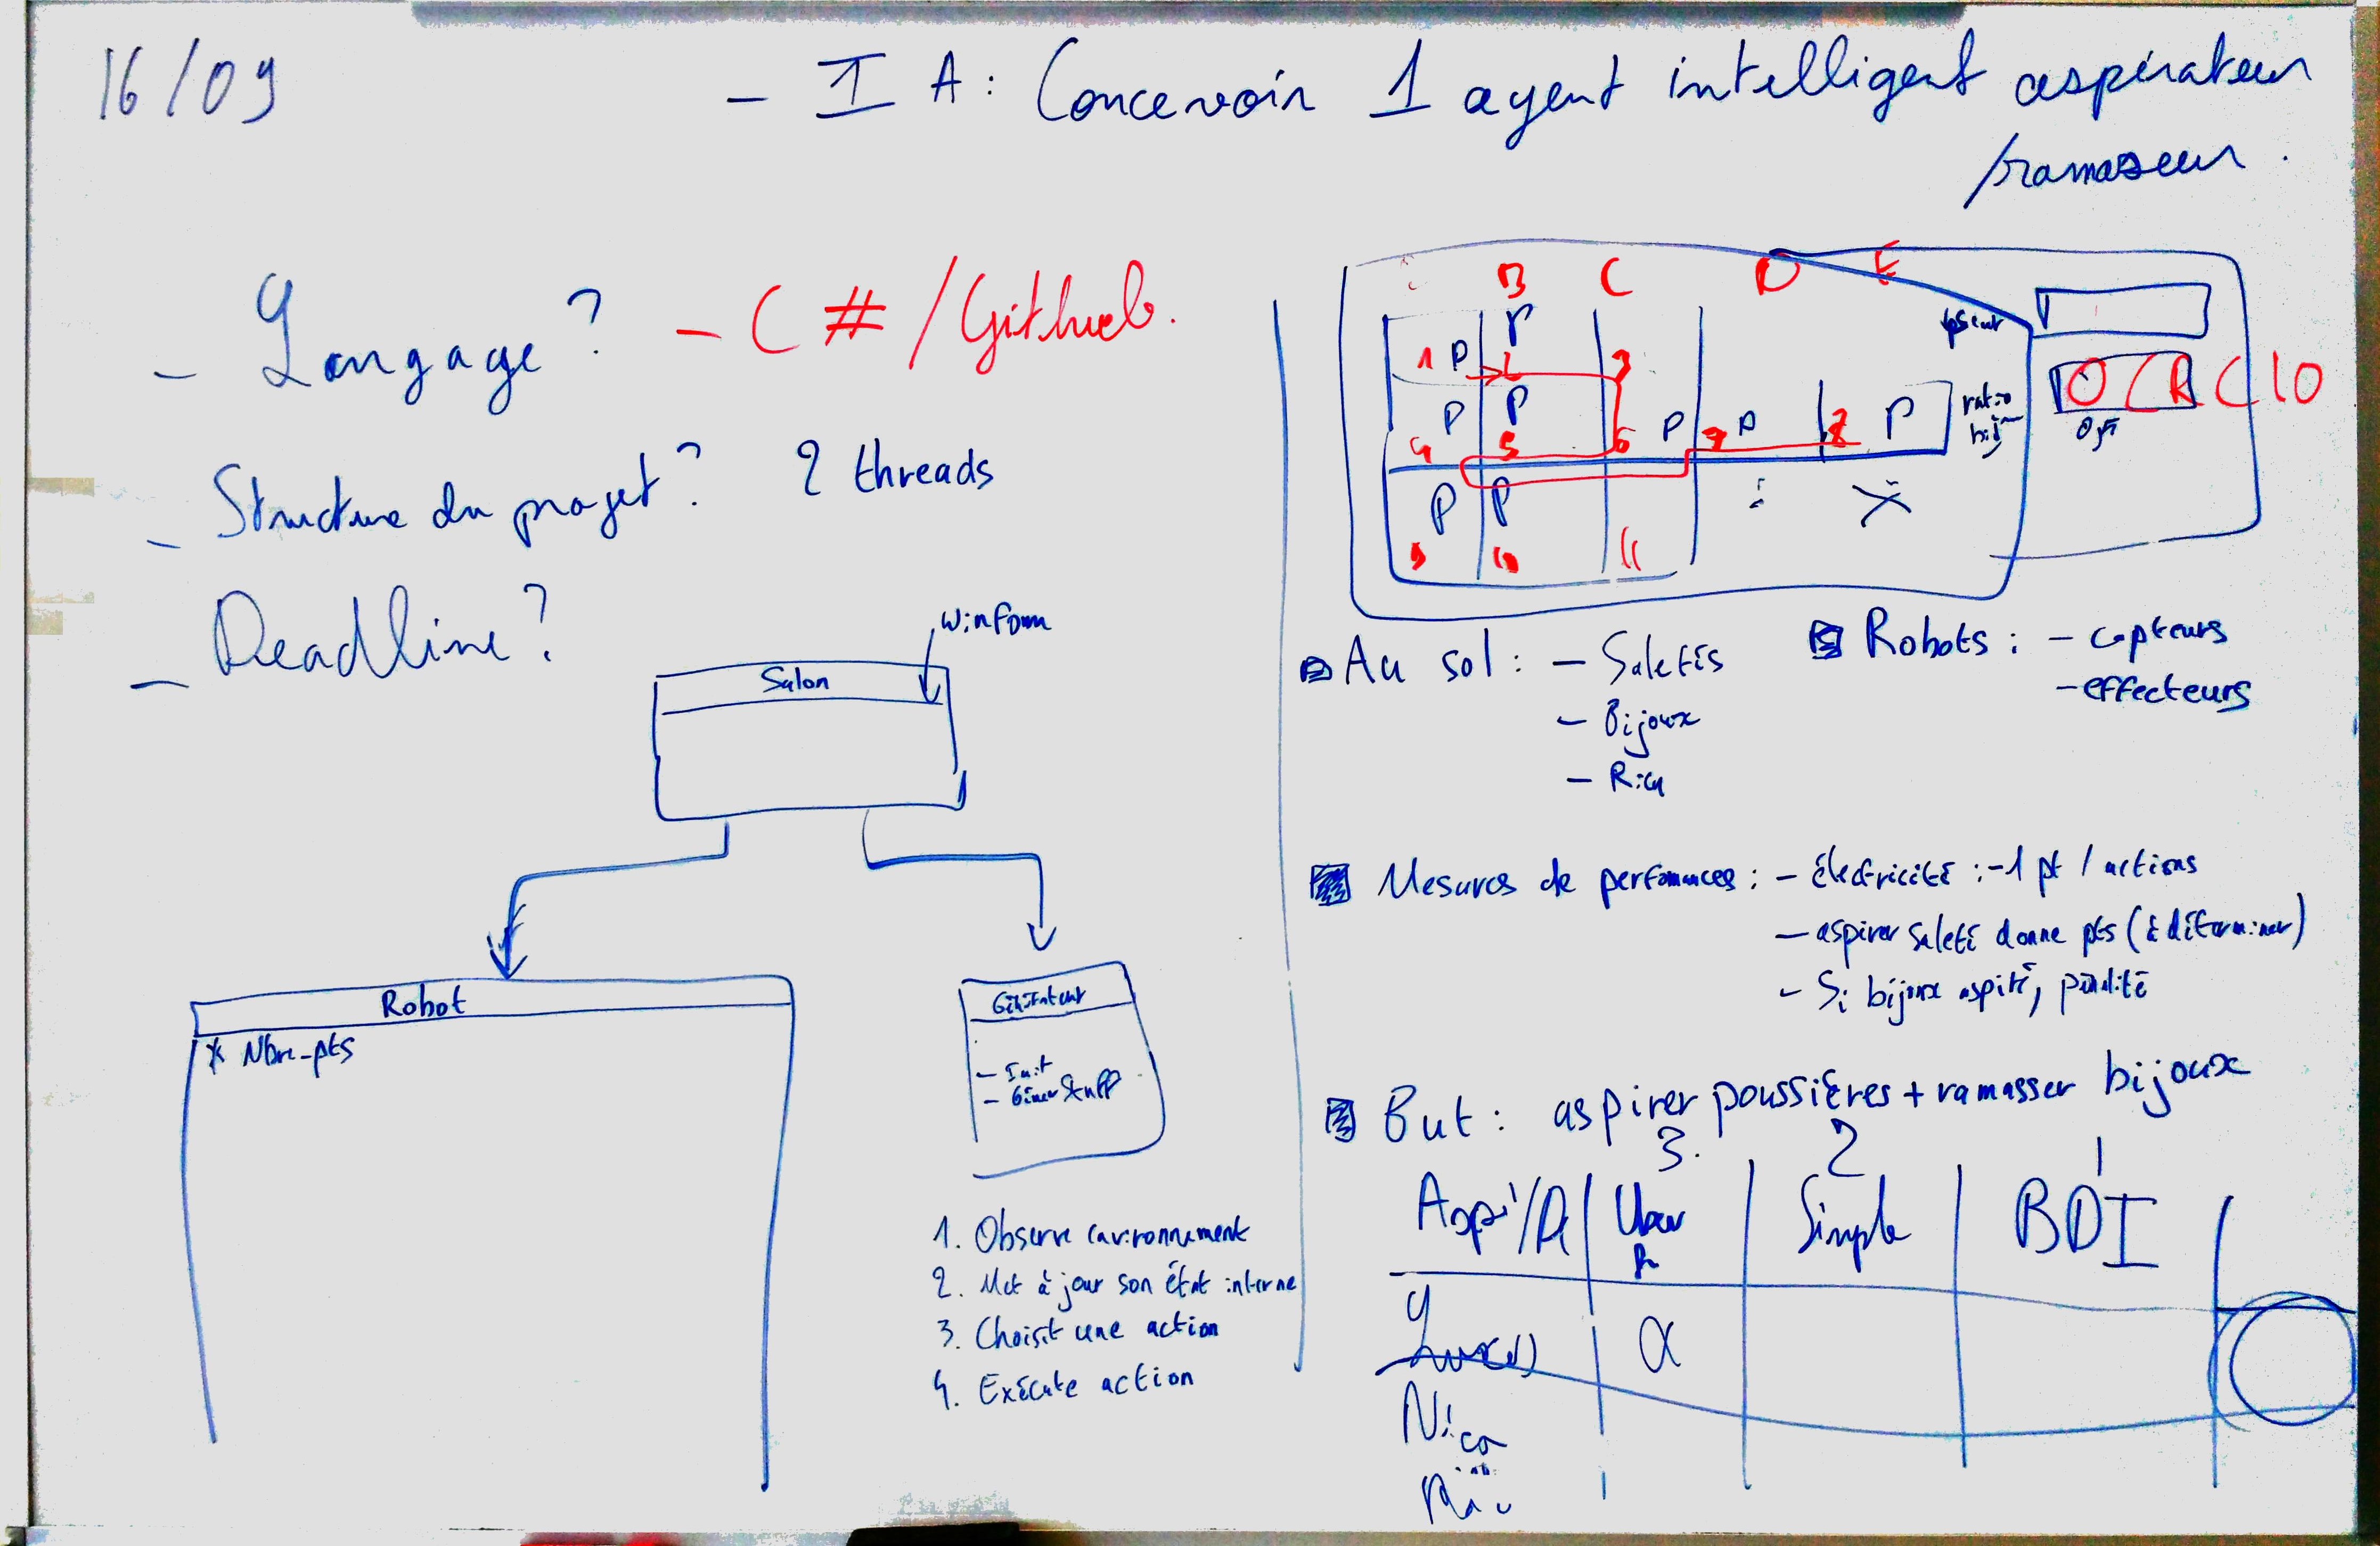 16/09
- IA : Concevoir 1 agent intelligent aspirateur
ramasseur.
- Langage ? - C # / Github.
- Structure du projet ? 2 threads
- Deadline ?
Winform
Salon
Robot
* Nbre-pts
- Init
1. Observe environnement
2. Met à jour son état interne
3. Choisit une action
4. Exécute action
B C D E
P
1 P 2 3
P P
4 5 6 P 7 P 8 P
P P
9 10 11
ratio
bij
O C R C 10
Au sol : - Saletés
- Bijoux
- Rien
Robots : - capteurs
- effecteurs
Mesures de performances : - électricité : -1 pt / actions
- aspirer saleté donne pts (à déterminer)
- Si bijoux aspiré, pénalité
But : aspirer poussières + ramasser bijoux
3. 2 1
Simple BDI
α
Nico